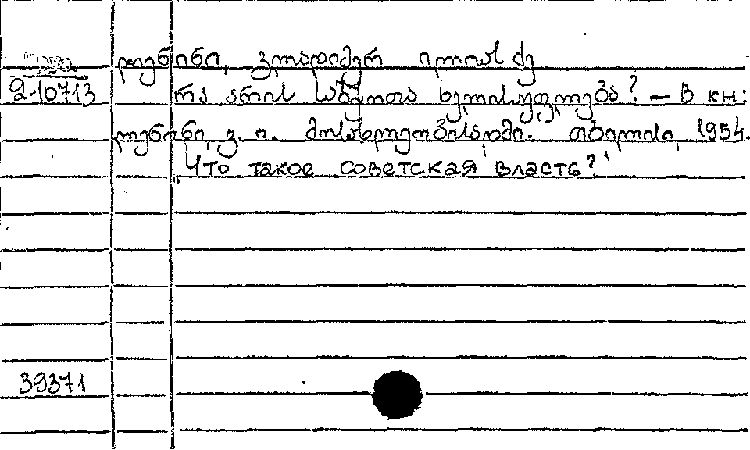 ლენინი, ვლადიმერ ილიას ძე
210713 რა არის საბჭოთა ხელისუფლება? – В кн:
ლენინი, ვ. ი. მოსახლეობისადმი. თბილისი, 1954.
"Что такое советская власть?"
39371